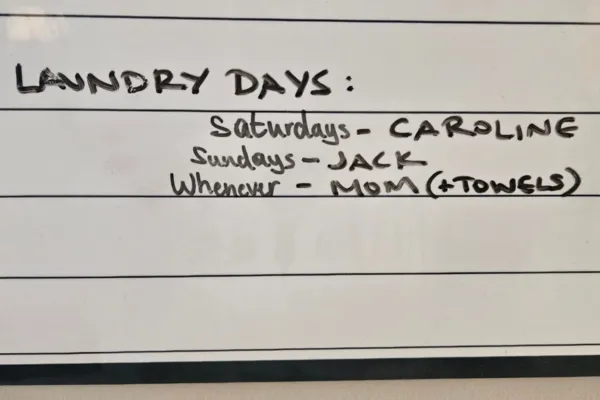 LAUNDRY DAYS:
Saturdays - CAROLINE
Sundays - JACK
Whenever - MOM (+TOWELS)